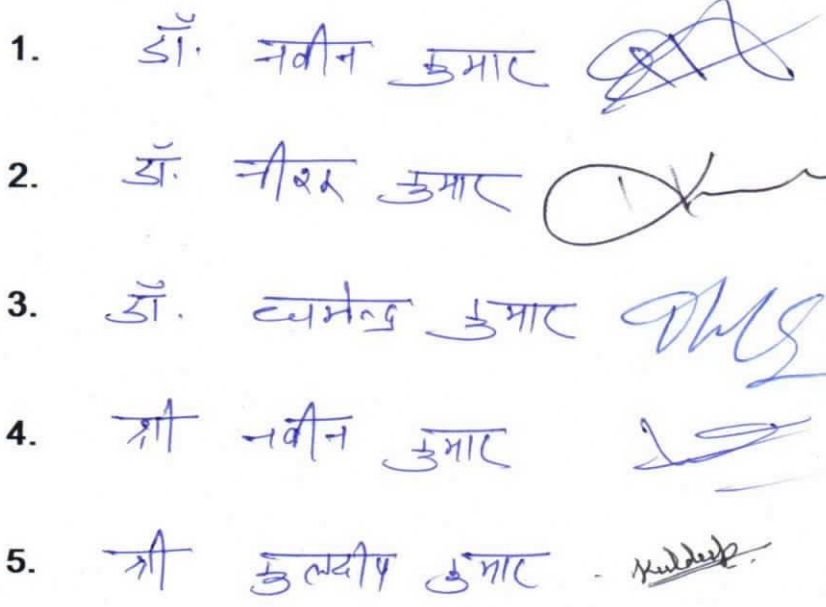 1. डॉ. नवीन कुमार
2. डॉ. कुमार
3. डॉ. धर्मेन्द्र कुमार
4. श्री नवीन कुमार
5. श्री कुलदीप कुमार Kuldeep